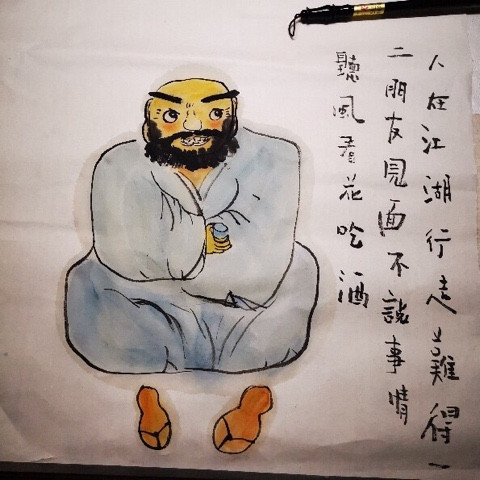 人在江湖行走難得一
二朋友見面不談事情
聽風看花吃酒